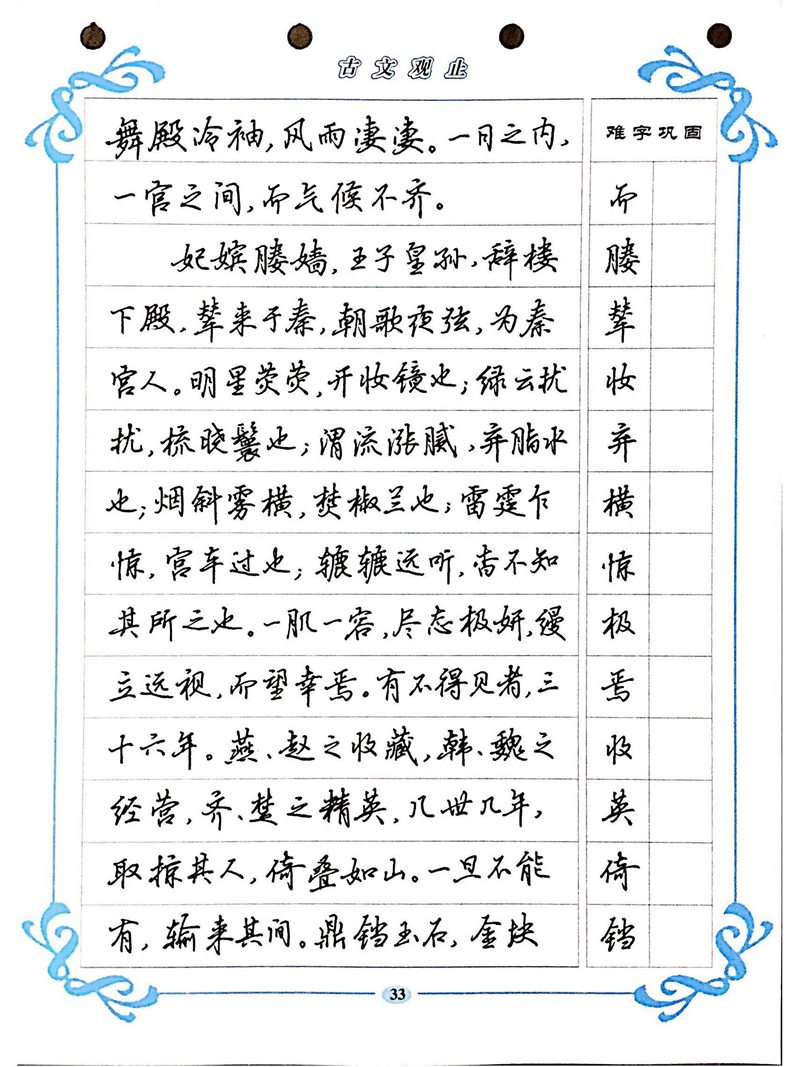 古文观止
舞殿冷袖，风雨凄凄。一日之内，
一宫之间，而气候不齐。
妃嫔媵嫱，王子皇孙，辞楼
下殿，辇来于秦，朝歌夜弦，为秦
宫人。明星荧荧，开妆镜也；绿云扰
扰，梳晓鬟也；渭流涨腻，弃脂水
也；烟斜雾横，焚椒兰也；雷霆乍
惊，宫车过也；辘辘远听，杳不知
其所之也。一肌一容，尽态极妍，缦
立远视，而望幸焉。有不得见者，三
十六年。燕、赵之收藏，韩、魏之
经营，齐、楚之精英，几世几年，
取掠其人，倚叠如山。一旦不能
有，输来其间。鼎铛玉石，金块
难字巩固
而
媵
辇
妆
弃
横
惊
极
焉
收
英
倚
铛
33